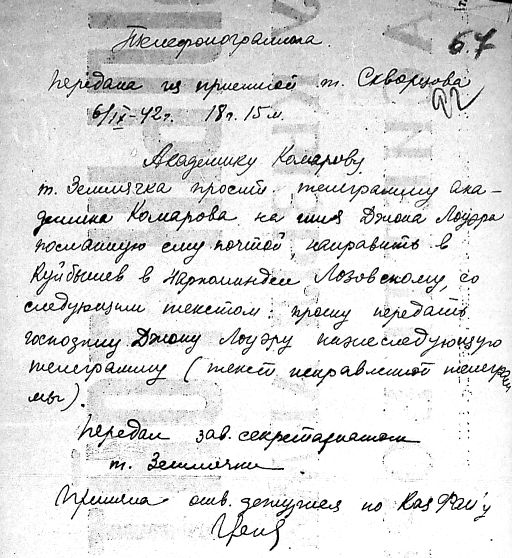 Телефонограмма.
67
Передана из приемной т. Скворцова
92
6/IX-42г. 18ч. 15м.
Академику Комарову.
т. Землячка просит телеграмму ака-
демика Комарова на имя Джона Лоуэра
посланную ему почтой, направить в
Куйбышев в Наркоминдел Лозовскому, со
следующим текстом: прошу передать
господину Джону Лоуэру нижеследующую
телеграмму (текст исправленной телеграм
мы).
Передал зав. секретариатом
т. Землячки
Приняла отв. дежурная по КазФАН'у